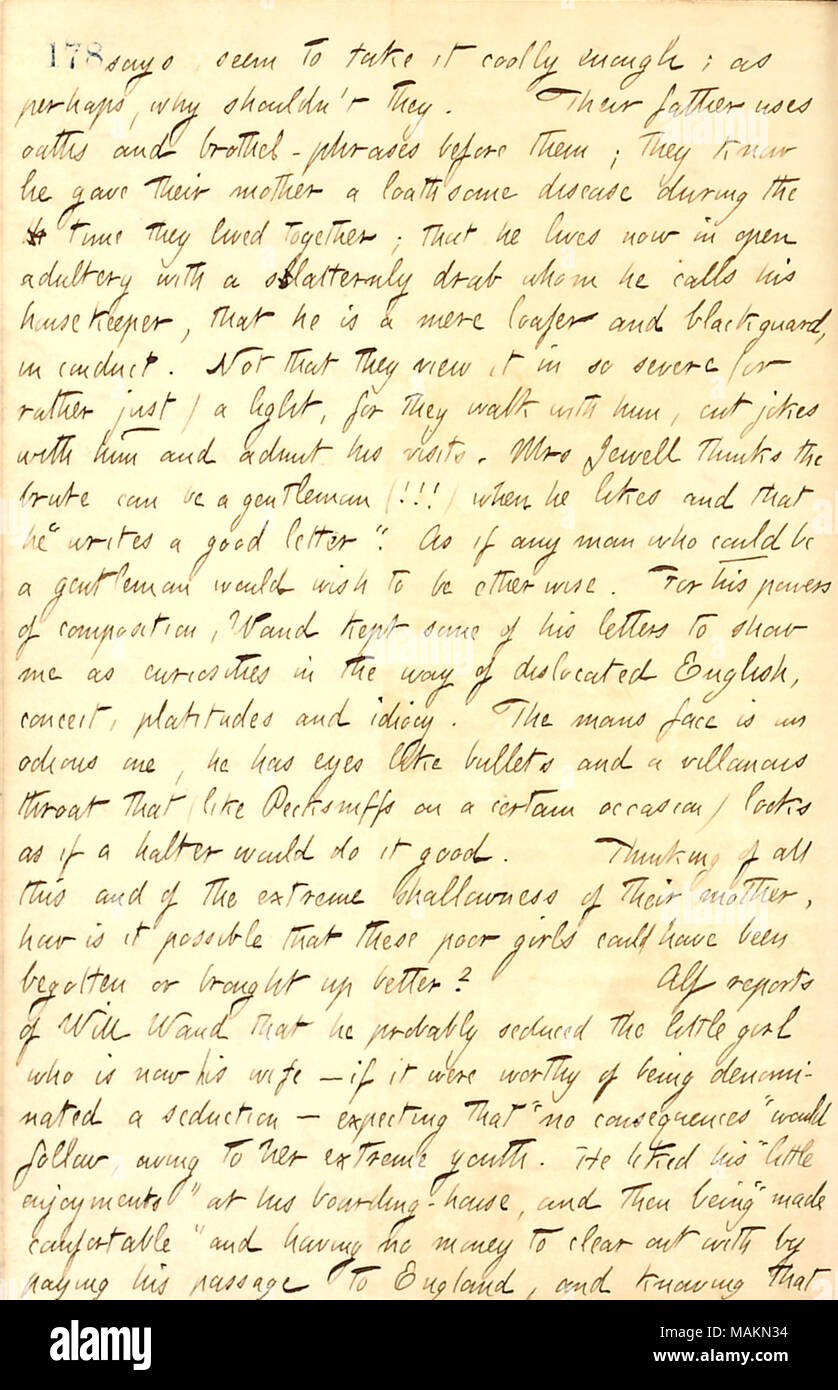 178 says, seem to take it coolly enough; as
perhaps, why shouldn't they. Their father uses
oaths and brothel-phrases before them; they know
he gave their mother a loathsome disease during the
time they lived together; that he lives now in open
adultery with a slatternly drab whom he calls his
housekeeper, that he is a mere loafer and blackguard,
in conduct. Not that they view it in so severe (or
rather just) a light, for they walk with him, cut jokes
with him and admit his visits. Mrs Jewell thinks the
brute can be a gentleman (!!!) when he likes and that
he "writes a good letter". As if any man who could be
a gentleman would wish to be otherwise. For his powers
of composition, Waud kept some of his letters to show
me as curiosities in the way of dislocated English,
conceit, platitudes and idiocy. The mans face is an
odious one, he has eyes like bullets and a villanous
throat that (like Pecksniffs on a certain occasion) looks
as if a halter would do it good. Thinking of all
this and of the extreme shallowness of their mother,
how is it possible that these poor girls could have been
begotten or brought up better? Alf reports
of Will Waud that he probably seduced the little girl
who is now his wife — if it were worthy of being denomi-
nated a seduction — expecting that "no consequences" would
follow, owing to her extreme youth. He liked his "little
enjoyments" at his boarding-house, and then being "made
comfortable" and having no money to clear out with by
paying his passage to England, and knowing that
alamy
Image ID: MAKN34
www.alamy.com